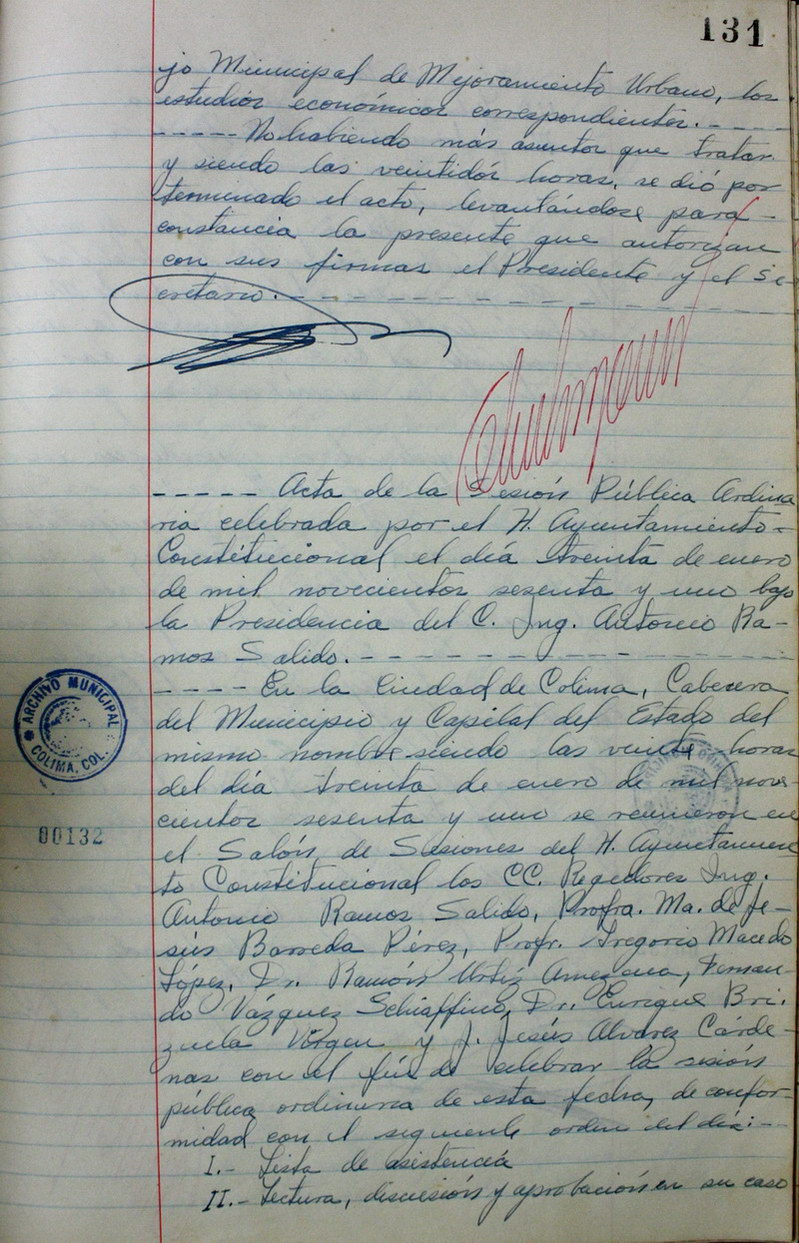 131
jo Municipal de Mejoramiento Urbano, los
estudios económicos correspondientes. - - - -
- - - - - No habiendo más asuntos que tratar
y siendo las veintidós horas, se dió por
terminado el acto, levantándose para -
constancia la presente que autorizan
con sus firmas el Presidente y el Se
cretario. - - - - - - - - - - - -
- - - - - Acta de la Sesión Pública Ordina
ria celebrada por el H. Ayuntamiento -
Constitucional el día treinta de enero
de mil novecientos sesenta y uno bajo
la Presidencia del C. Ing. Antonio Ra-
mos Salido. - - - - - - - - - - - -
- - - - En la Ciudad de Colima, Cabecera
del Municipio y Capital del Estado del
mismo nombre siendo las veinte horas
del día treinta de enero de mil nove-
cientos sesenta y uno se reunieron en
el Salón de Sesiones del H. Ayuntamien
to Constitucional los CC. Regidores Ing.
Antonio Ramos Salido, Profra. Ma. de Je-
sús Barreda Pérez, Profr. Gregorio Macedo
López, Dr. Ramón Urtiz Amezcua, Fernan-
do Vázquez Schiaffino, Dr. Enrique Bri-
zuela Virgen y J. Jesús Alvarez Cárde-
nas con el fin de celebrar la sesión
pública ordinaria de esta fecha, de confor-
midad con el siguiente orden del día: -
I.- Lista de asistencia
II.- Lectura, discusión y aprobación en su caso
ARCHIVO MUNICIPAL
COLIMA, COL.
00132